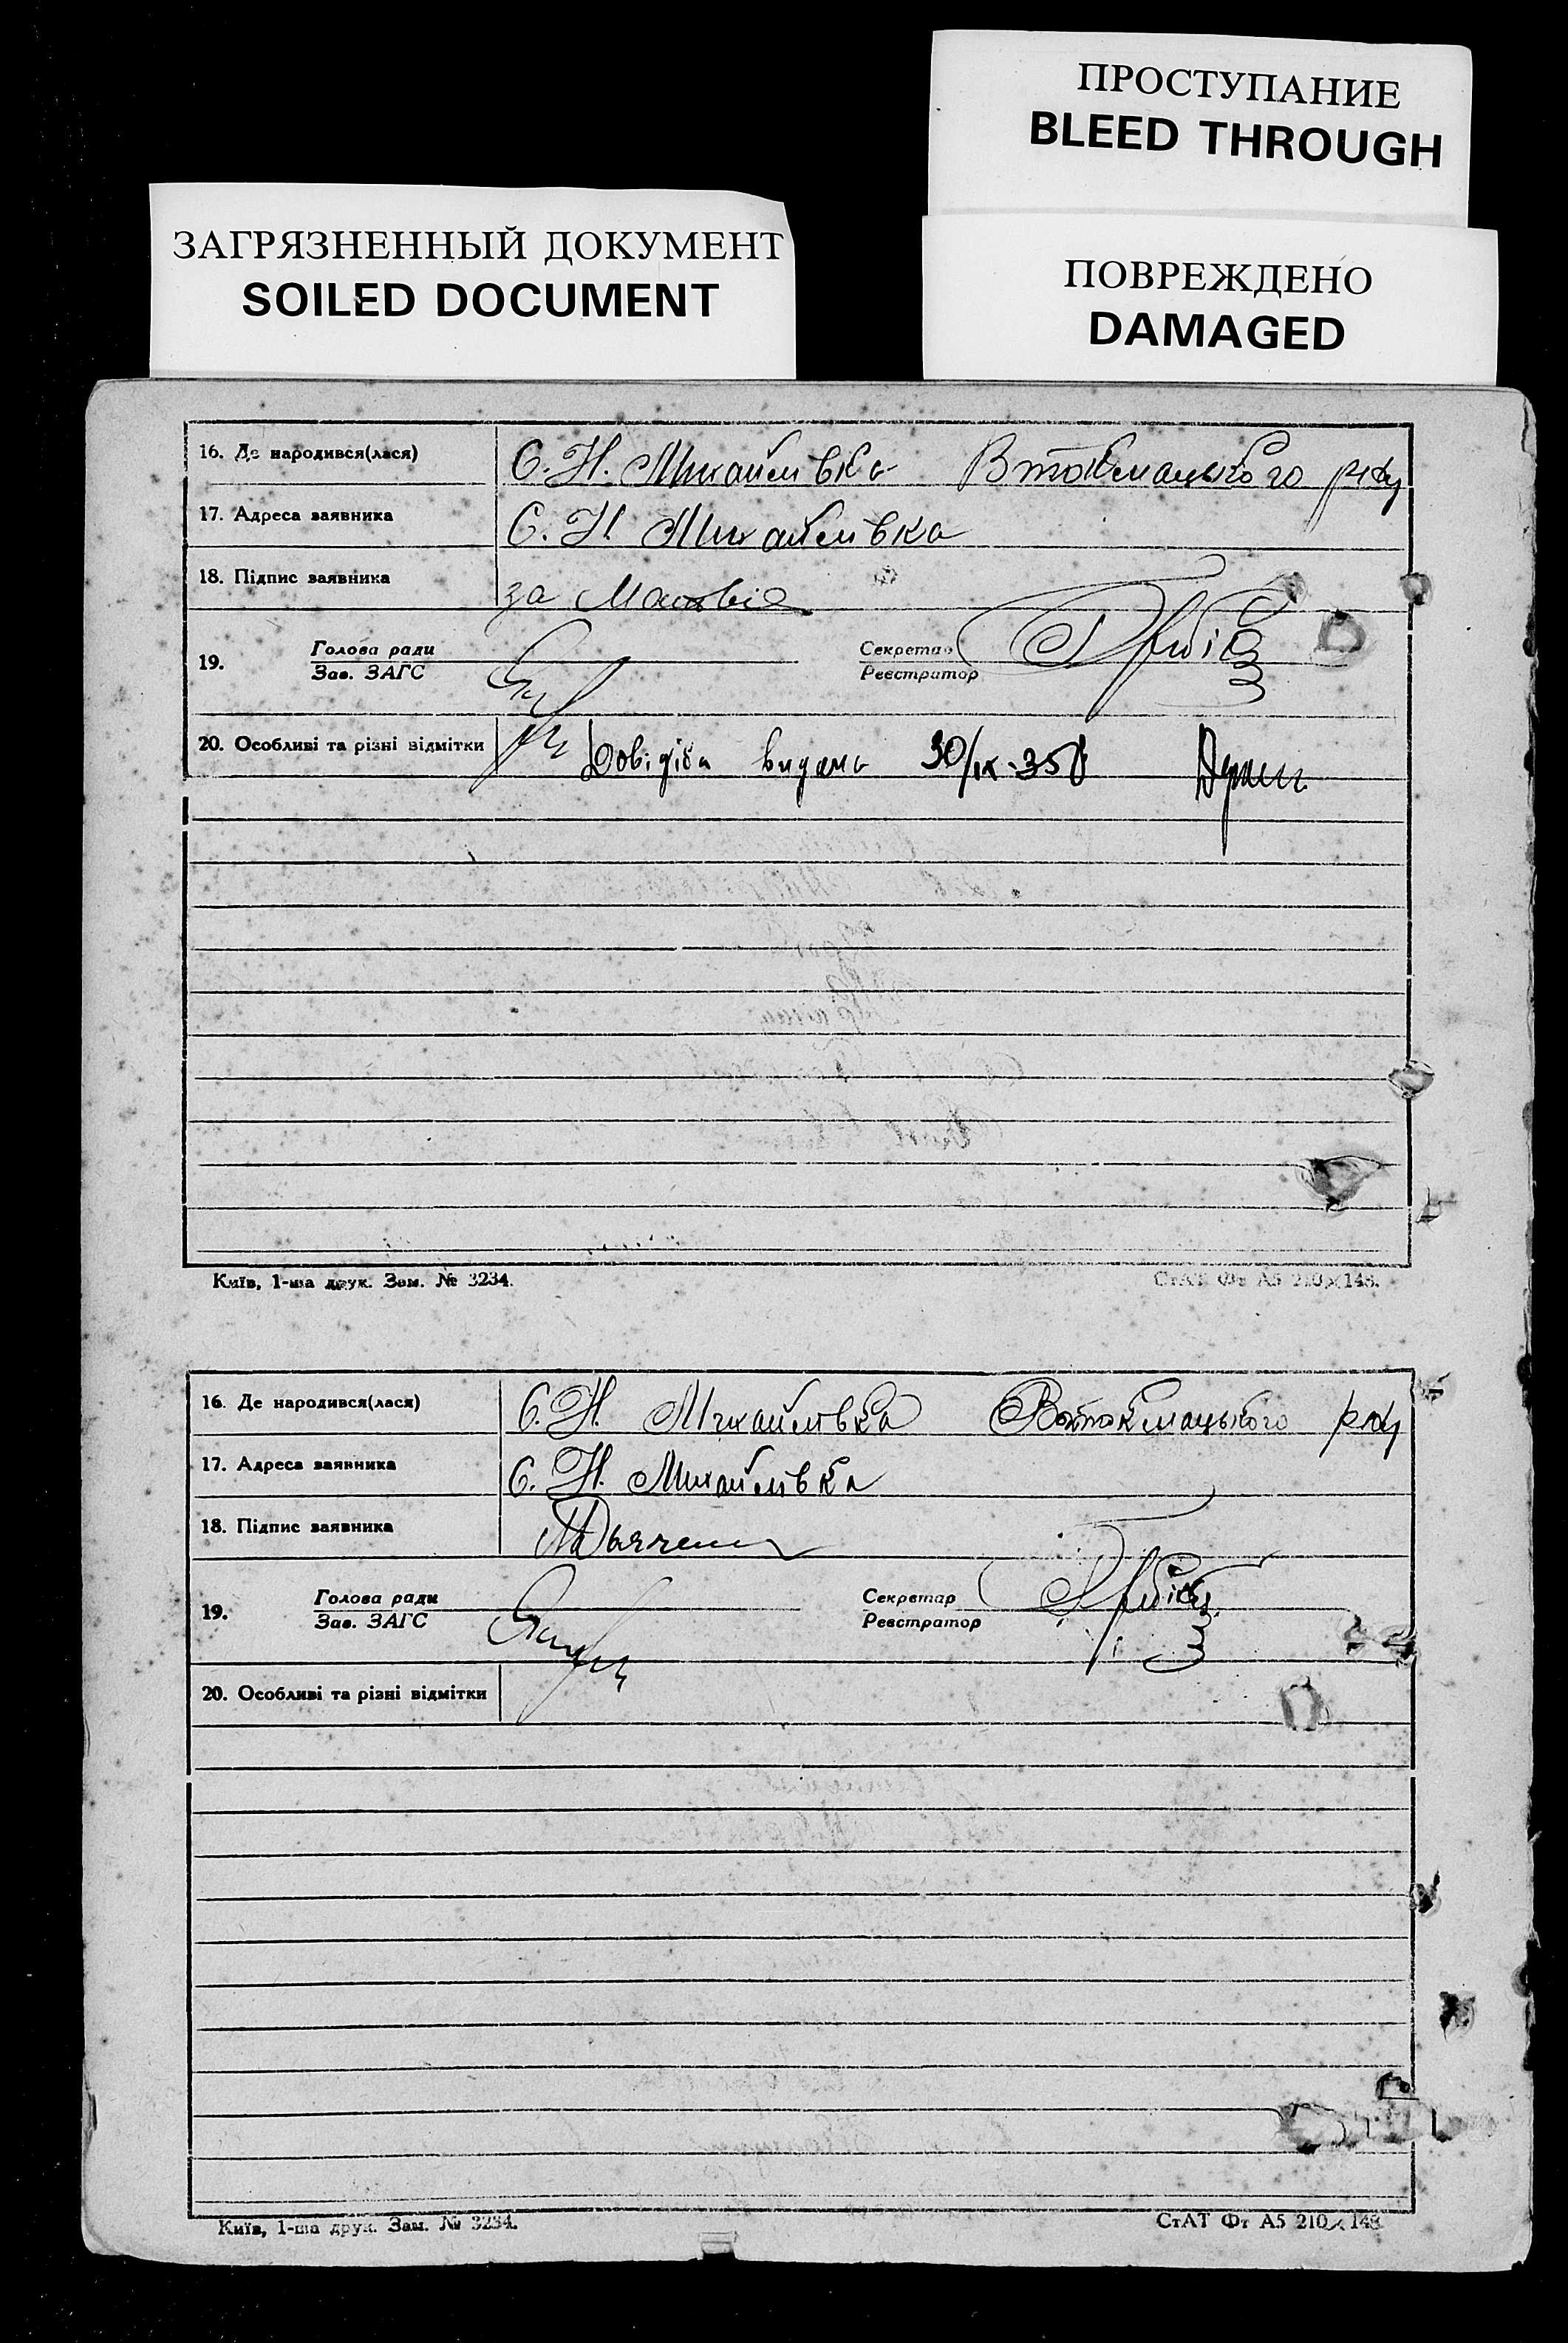 ПРОСТУПАНИЕ
BLEED THROUGH
ЗАГРЯЗНЕННЫЙ ДОКУМЕНТ
SOILED DOCUMENT
ПОВРЕЖДЕНО
DAMAGED
16. Де народився(лася) С. Н. Михайлівка Втокмацького р-ну
17. Адреса заявника С. Н. Михайлівка
18. Підпис заявника за
19. Голова ради Секретар
Зав. ЗАГС Реєстратор
20. Особливі та різні відмітки Довідка видана 30/IX-35
Київ, 1-ша друк. Зам. № 3234. СтАТ Фт А5 210×148.
16. Де народився(лася) С. Н. Михайлівка Втокмацького р-ну
17. Адреса заявника С. Н. Михайлівка
18. Підпис заявника
19. Голова ради Секретар
Зав. ЗАГС Реєстратор
20. Особливі та різні відмітки
Київ, 1-ша друк. Зам. № 3234. СтАТ Фт А5 210×148.